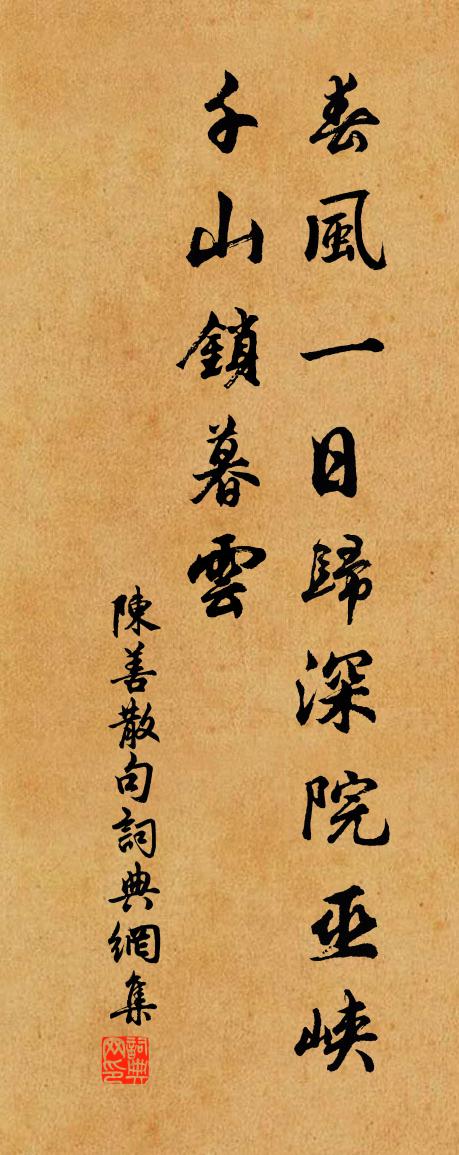 春風一日歸深院巫峽
千山鎖暮雲
陳善散句詞典網集
詞典網印